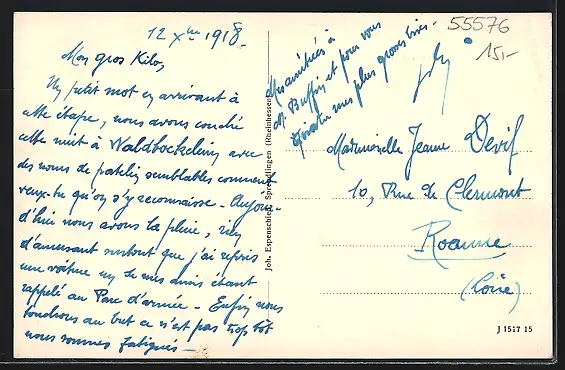 12 Xbre 1918.
Mon gros Kilo,
Un petit mot en arrivant à
cette étape, nous avons couché
cette nuit à Waldböckelheim avec
des noms de patelin semblables comment
veux-tu qu'on s'y reconnaisse - Aujour-
d'hui nous avons la pluie, rien
d'amusant surtout que j'ai repris
une voiture un de mes amis étant
rappelé au Parc d'armée - Enfin nous
touchons au but ce n'est pas trop tôt
nous sommes fatigués -
Mes amitiés à
M. Buffin et pour vous
mes plus grosses bises -
55576
15,-
Mademoiselle Jeanne Devif
10, Rue de Clermont
Roanne
(Loire)
Joh. Espenschied, Sprendlingen (Rheinhessen)
J 1517 15